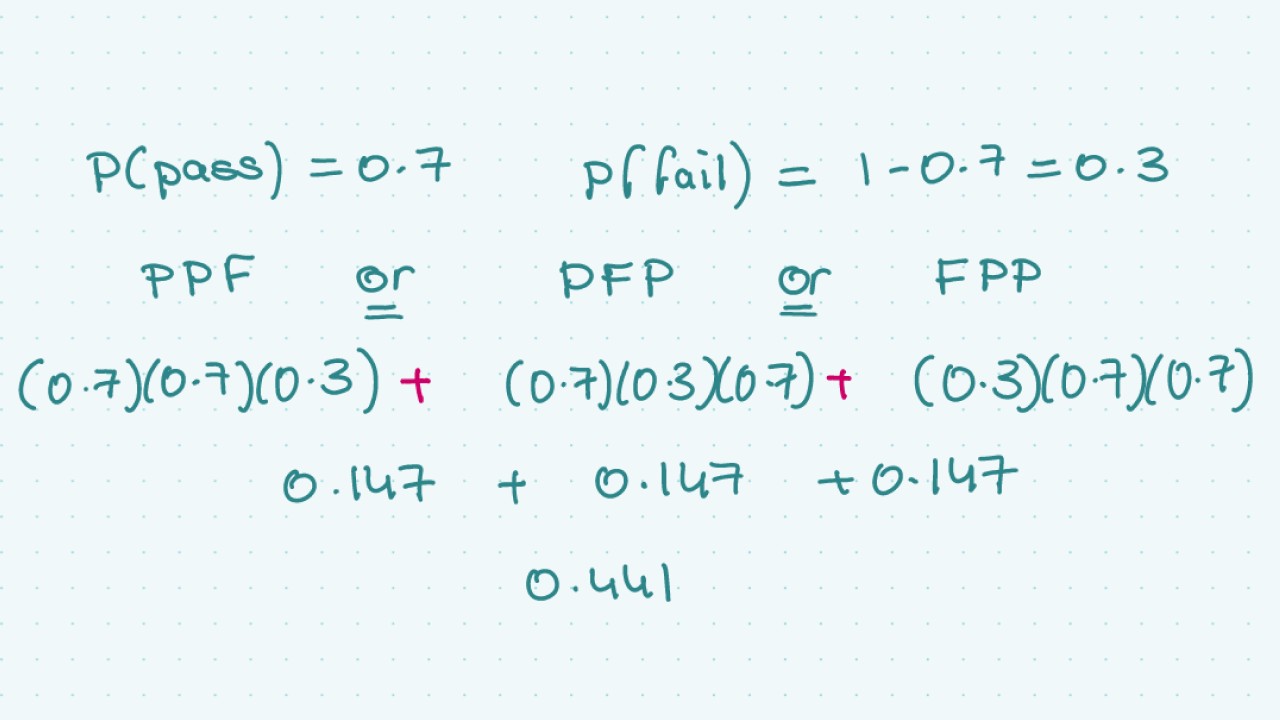 P(pass) = 0.7 P(fail) = 1 - 0.7 = 0.3
PPF or PFP or FPP
(0.7)(0.7)(0.3) + (0.7)(0.3)(0.7) + (0.3)(0.7)(0.7)
0.147 + 0.147 + 0.147
0.441